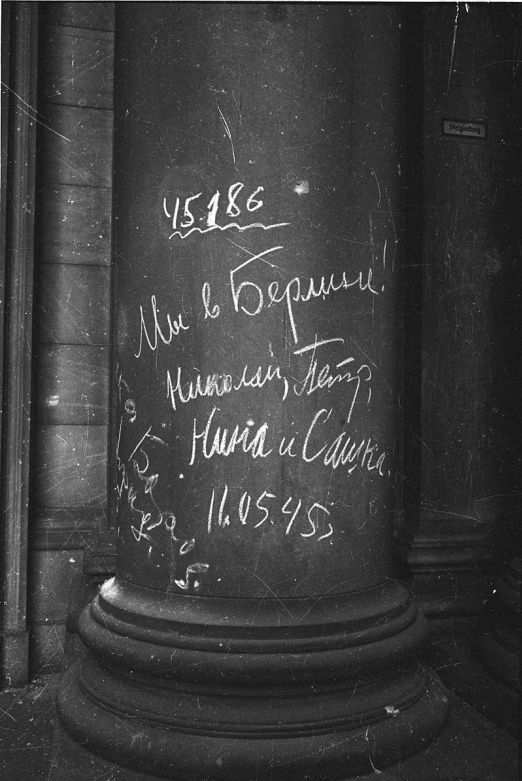 45186
Мы в Берлине!
Николай, Петр,
Нина и Сашка.
11.05.45